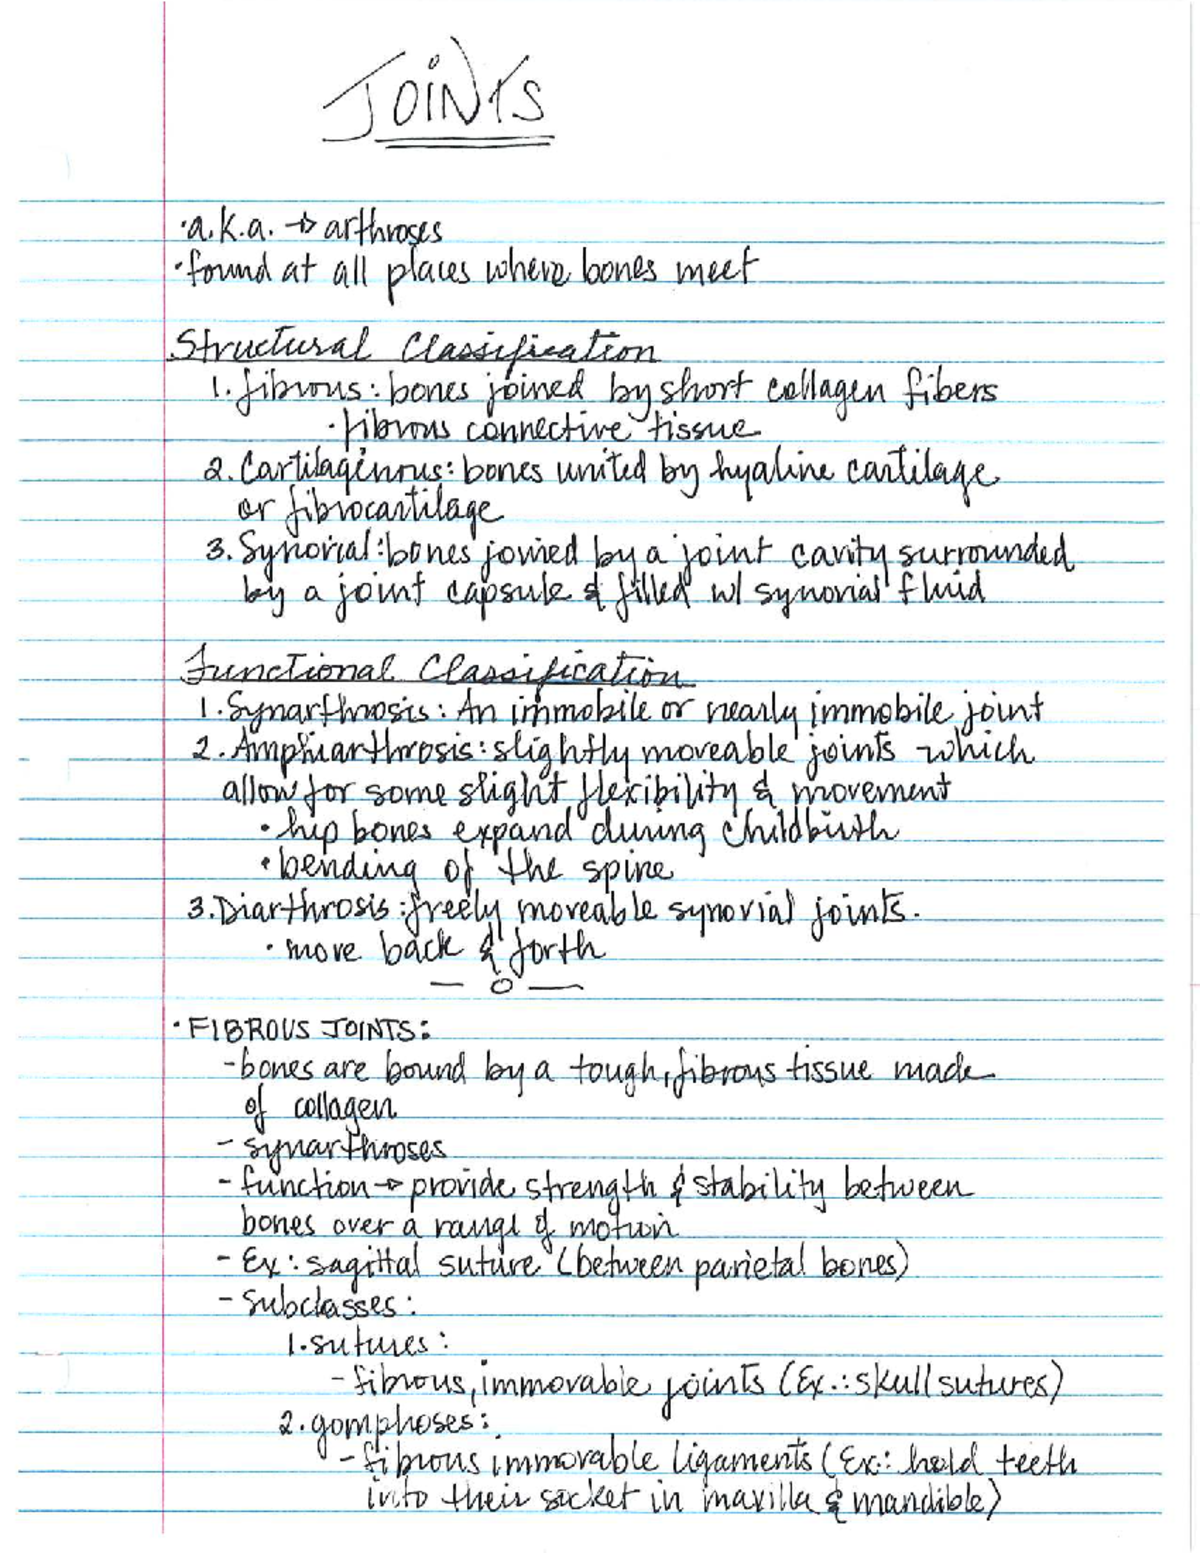 JOINTS
·a.k.a. → arthroses
·found at all places where bones meet
Structural Classification
1. fibrous: bones joined by short collagen fibers
·fibrous connective tissue
2. Cartilagenous: bones united by hyaline cartilage
or fibrocartilage
3. Synovial: bones joined by a joint cavity surrounded
by a joint capsule & filled w/ synovial fluid
Functional Classification
1. Synarthrosis: An immobile or nearly immobile joint
2. Amphiarthrosis: slightly moveable joints which
allow for some slight flexibility & movement
• hip bones expand during childbirth
• bending of the spine
3. Diarthrosis: freely moveable synovial joints.
· move back & forth
— o —
· FIBROUS JOINTS:
- bones are bound by a tough, fibrous tissue made
of collagen
- synarthroses
- function → provide strength & stability between
bones over a range of motion
- Ex: sagittal suture (between parietal bones)
- subclasses:
1. sutures:
- fibrous, immovable joints (Ex.: skull sutures)
2. gomphoses:
- fibrous immovable ligaments (Ex.: hold teeth
into their socket in maxilla & mandible)